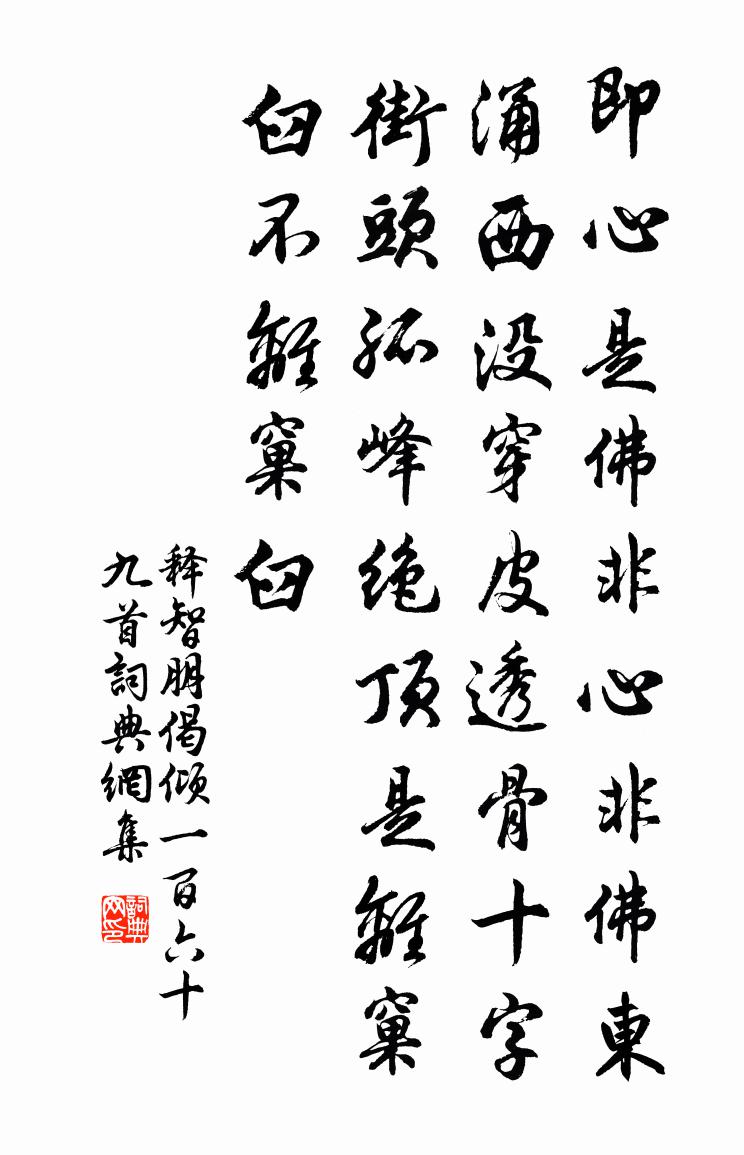 即心是佛非心非佛東
涌西没穿皮透骨十字
街頭孤峰绝顶是離窠
臼不離窠臼
释智朋偈倾一百六十
九首詞典網集
詞典网印